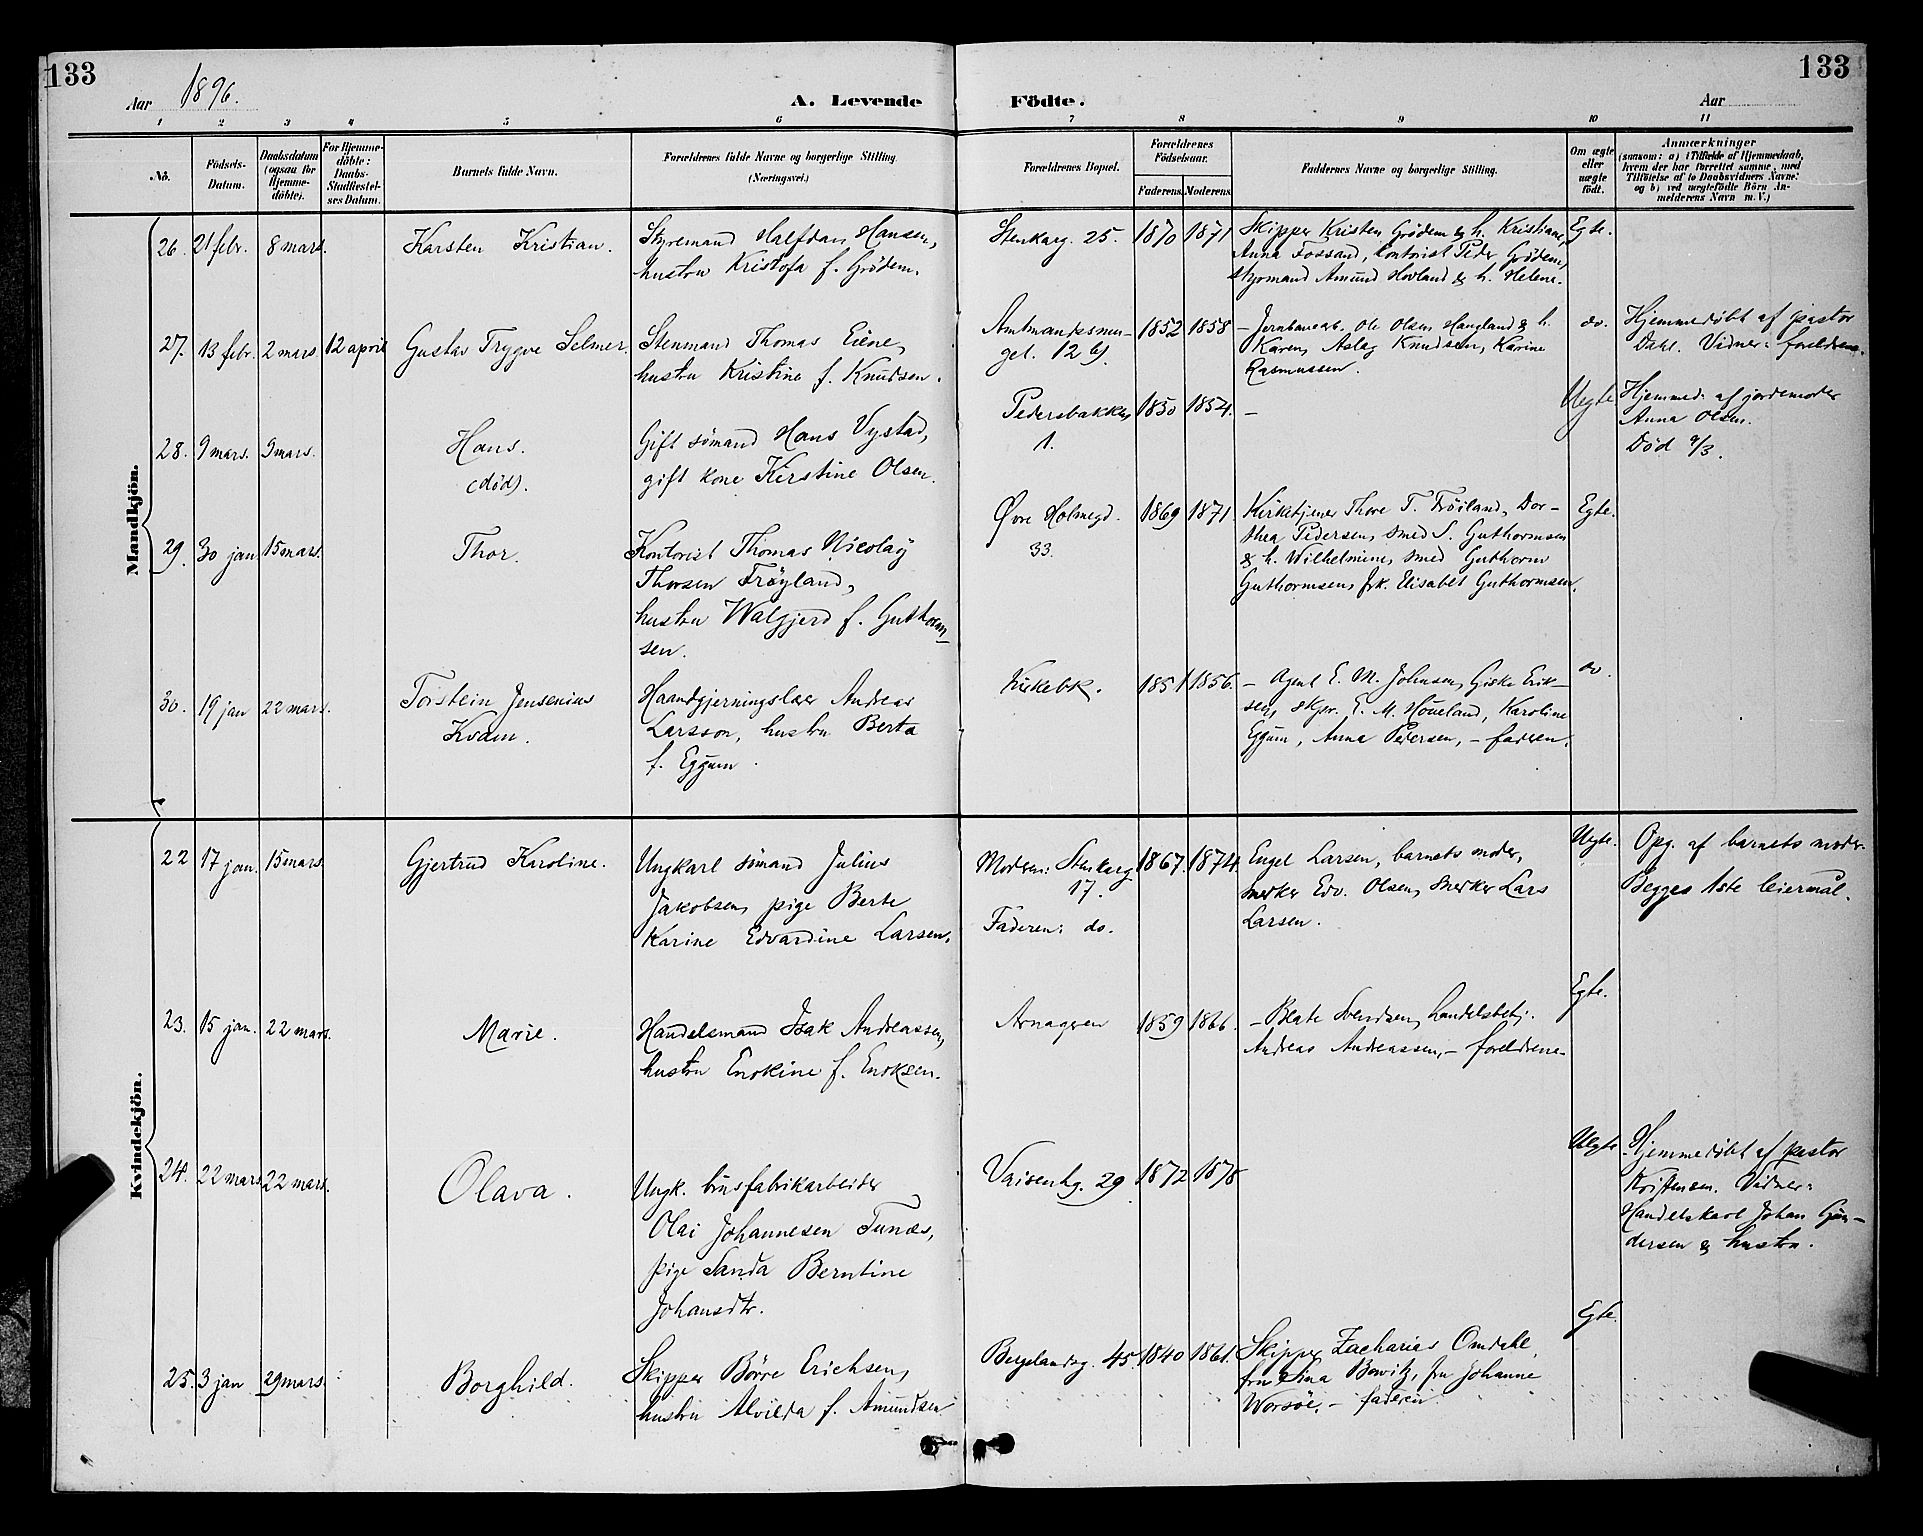 133
133
Aar 1896.
A. Levende
Födte.
Aar
1 2 3 4 5 6 7 8 9 10 11
No.
Födsels-
Datum.
Daabsdatum
(ogsaa for
Hjemme-
döbte).
For Hjemme-
döbte:
Daabs-
Stadfæstel-
ses Datum.
Barnets fulde Navn.
Forældrenes fulde Navne og borgerlige Stilling.
(Næringsvei.)
Forældrenes Bopæl.
Forældrenes
Födselsaar.
Faderens. Moderens.
Faddernes Navne og borgerlige Stilling.
Om ægte
eller
uægte
födt.
Anmærkninger
(saasom: a) i Tilfælde af Hjemmedaab,
hvem der har forrettet samme, med
Tilföielse af to Daabsvidners Navne;
og b) ved uægtefödte Börn An-
melderens Navn m. V.)
Mandkjön.
26. 21 febr. 8 mars. Karsten Kristian.
Styremand Halfdan Hansen,
hustru Kristofa f. Grødem.
Stenkarg. 25. 1870 1871
Skipper Kristen Grødem & h. Kristiane,
Anna Fossand, kontorist Peder Grødem,
styrmand Amund Hovland & h. Helene.
Egte.
27. 13 febr. 2 mars. 12 april Gustav Trygve Selmer.
Stenmand Thomas Eiene,
hustru Kristine f. Knudsen.
Amtmandssmu-
get. 12 b). 1852 1858
– Jernbanearb. Ole Olsen Haugland & h.
Karen, Aslag Knudsen, Karine
Rasmussen.
do.
Hjemmedøbt af pastor
Dahl. Vidner: forældrene.
28. 9 mars. 9 mars. Hans.
(død).
Gift sømand Hans Vystad,
gift kone Kirstine Olsen.
Pedersbakken
1. 1850 1854. –
Uegte
Hjemmed. af jordemoder
Anna Olsen.
Død 9/3.
29. 30 jan 15 mars. Thor.
Kontorist Thomas Nicolay
Thorsen Frøyland,
hustru Walgjerd f. Guthorm-
sen.
Øvre Holmegd.
33. 1869 1871.
Kirketjener Thore T. Frøiland, Dor-
thea Pedersen, smed S. Guthormsen
& h. Wilhelmine, smed Guthorm
Guthormsen, frk. Elisabet Guthormsen.
Egte.
30. 19 jan 22 mars. Torstein Jensenius
Kvam.
Haandgjerningslærer Andreas
Larsson, hustru Berta
f. Eggum.
Kirkebk. 1851 1856.
– Agent E. M. Johnsen, Giske Erik-
sen, skpr. E. M. Høueland, Karoline
Eggum, Anna Pedersen, – faderen.
do.
Kvindekjön.
22 17 jan. 15 mars. Gjertrud Karoline.
Ungkarl sømand Julius
Jakobsen, pige Berte
Karine Edvardine Larsen.
Moderen: Stenkarg
17.
Faderen: do.
1867. 1874.
Engel Larsen, barnets moder,
snedker Edv. Olsen, snedker Lars
Larsen.
Uegte.
Opg. af barnets moder.
Begges 1ste leiermål.
23. 15 jan. 22 mars. Marie.
Handelsmand Isak Andreassen,
hustru Enokine f. Enoksen.
Arnageren 1859 1866.
– Beate Svendsen, handelsbetj.
Andreas Andreassen, – forældrene –
Egte.
24. 22 mars 22 mars. Olava.
Ungk. brusfabrikarbeider
Olai Johannesen Tunæs,
pige Sanda Berntine
Johansdtr.
Vaisenhg. 29 1872 1878
Uegte
Hjemmedøbt af pastor
Kristensen. Vidner:
Handelskarl Johan Gun-
dersen & hustru.
25. 3 jan 29 mars. Borghild.
Skipper Børre Erichsen,
hustru Alvilda f. Amundsen
Bergelandsg. 45. 1840 1861.
Skipper Zacharias Omdahl,
fru Sina Bowitz, fru Johanne
Worsøe, – faderen.
Egte.